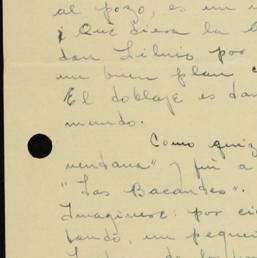 al pozo, es un
¡Qué diera la
don Silvio por
un buen plan
El doblaje es dan
mundo.
Como quiz
ventana" y fui a
"Las Bacantes".
Imagínese: por ci
tando, un pequeñ